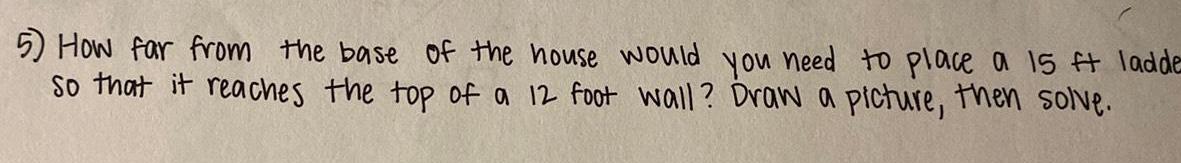 5) How far from the base of the house would you need to place a 15 ft ladde
so that it reaches the top of a 12 foot wall? Draw a picture, then solve.